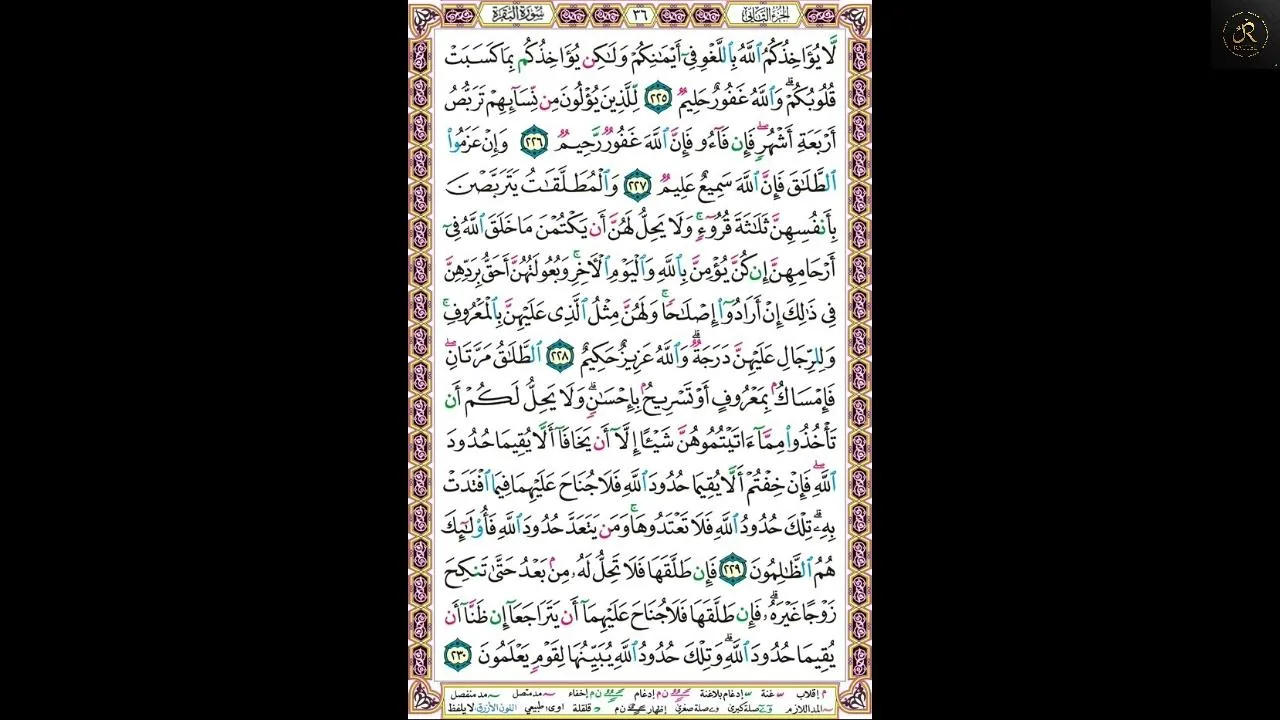 الجزء الثاني ٣٦ سورة البقرة
لَّا يُؤَاخِذُكُمُ ٱللَّهُ بِٱللَّغْوِ فِىٓ أَيْمَٰنِكُمْ وَلَٰكِن يُؤَاخِذُكُم بِمَا كَسَبَتْ
قُلُوبُكُمْ ۗ وَٱللَّهُ غَفُورٌ حَلِيمٌ ٢٢٥ لِّلَّذِينَ يُؤْلُونَ مِن نِّسَآئِهِمْ تَرَبُّصُ
أَرْبَعَةِ أَشْهُرٍ ۖ فَإِن فَآءُو فَإِنَّ ٱللَّهَ غَفُورٌ رَّحِيمٌ ٢٢٦ وَإِنْ عَزَمُوا۟
ٱلطَّلَٰقَ فَإِنَّ ٱللَّهَ سَمِيعٌ عَلِيمٌ ٢٢٧ وَٱلْمُطَلَّقَٰتُ يَتَرَبَّصْنَ
بِأَنفُسِهِنَّ ثَلَٰثَةَ قُرُوٓءٍ ۚ وَلَا يَحِلُّ لَهُنَّ أَن يَكْتُمْنَ مَا خَلَقَ ٱللَّهُ فِىٓ
أَرْحَامِهِنَّ إِن كُنَّ يُؤْمِنَّ بِٱللَّهِ وَٱلْيَوْمِ ٱلْءَاخِرِ ۚ وَبُعُولَتُهُنَّ أَحَقُّ بِرَدِّهِنَّ
فِى ذَٰلِكَ إِنْ أَرَادُوٓا۟ إِصْلَٰحًا ۚ وَلَهُنَّ مِثْلُ ٱلَّذِى عَلَيْهِنَّ بِٱلْمَعْرُوفِ ۚ
وَلِلرِّجَالِ عَلَيْهِنَّ دَرَجَةٌ ۗ وَٱللَّهُ عَزِيزٌ حَكِيمٌ ٢٢٨ ٱلطَّلَٰقُ مَرَّتَانِ ۖ
فَإِمْسَاكٌۢ بِمَعْرُوفٍ أَوْ تَسْرِيحٌۢ بِإِحْسَٰنٍ ۗ وَلَا يَحِلُّ لَكُمْ أَن
تَأْخُذُوا۟ مِمَّآ ءَاتَيْتُمُوهُنَّ شَيْـًٔا إِلَّآ أَن يَخَافَآ أَلَّا يُقِيمَا حُدُودَ
ٱللَّهِ ۖ فَإِنْ خِفْتُمْ أَلَّا يُقِيمَا حُدُودَ ٱللَّهِ فَلَا جُنَاحَ عَلَيْهِمَا فِيمَا ٱفْتَدَتْ
بِهِۦ ۗ تِلْكَ حُدُودُ ٱللَّهِ فَلَا تَعْتَدُوهَا ۚ وَمَن يَتَعَدَّ حُدُودَ ٱللَّهِ فَأُو۟لَٰٓئِكَ
هُمُ ٱلظَّٰلِمُونَ ٢٢٩ فَإِن طَلَّقَهَا فَلَا تَحِلُّ لَهُۥ مِنۢ بَعْدُ حَتَّىٰ تَنكِحَ
زَوْجًا غَيْرَهُۥ ۗ فَإِن طَلَّقَهَا فَلَا جُنَاحَ عَلَيْهِمَآ أَن يَتَرَاجَعَآ إِن ظَنَّآ أَن
يُقِيمَا حُدُودَ ٱللَّهِ ۗ وَتِلْكَ حُدُودُ ٱللَّهِ يُبَيِّنُهَا لِقَوْمٍ يَعْلَمُونَ ٢٣٠
م إقلاب غنة إدغام بلاغنة ن م إدغام ن م إخفاء مد متصل مد منفصل
المد اللازم صلة كبرى صلة صغرى إظهار ن م قلقلة اوى: طبيعي اللون الأزرق لا يلفظ